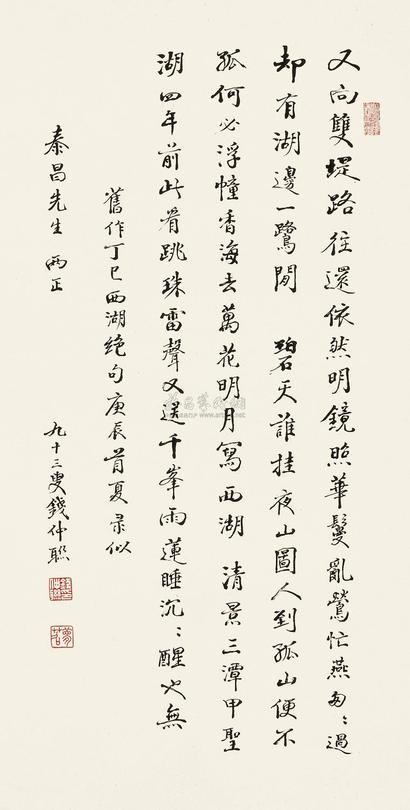 又向雙堤路往還依然明鏡照華鬘亂鶯忙燕匆〻過
却有湖邊一鷺閒　碧天誰挂夜山圖人到孤山便不
孤何必浮幢香海去萬花明月寫西湖　清景三潭甲聖
湖四年前此看跳珠雷聲又送千峯雨蓮睡沉〻醒也無
舊作丁巳西湖絕句庚辰首夏录似
泰昌先生兩正
九十三叟錢仲聯